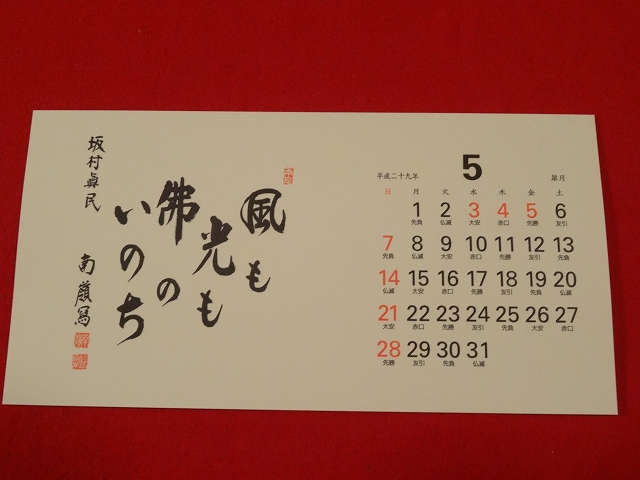 風も
光も
佛の
いのち
坂村眞民
南嶺寫
平成二十九年
5
皐月
日 月 火 水 木 金 土
1 2 3 4 5 6
先負 仏滅 大安 赤口 先勝 友引
7 8 9 10 11 12 13
先負 仏滅 大安 赤口 先勝 友引 先負
14 15 16 17 18 19 20
仏滅 大安 赤口 先勝 友引 先負 仏滅
21 22 23 24 25 26 27
大安 赤口 先勝 友引 先負 大安 赤口
28 29 30 31
先勝 友引 先負 仏滅